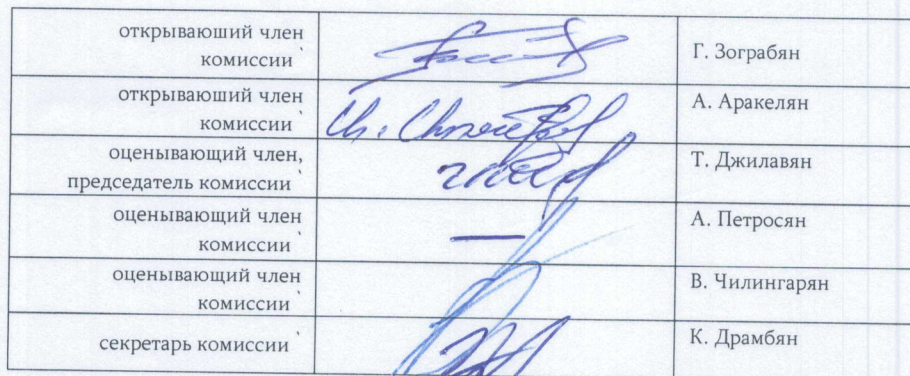 открываюший член
комиссии՝
Г. Зограбян
открываюший член
комиссии՝
А. Аракелян
оценывающий член,
председатель комиссии՝
Т. Джилавян
оценывающий член
комиссии՝
А. Петросян
оценывающий член
комиссии՝
В. Чилингарян
секретарь комиссии՝
К. Драмбян